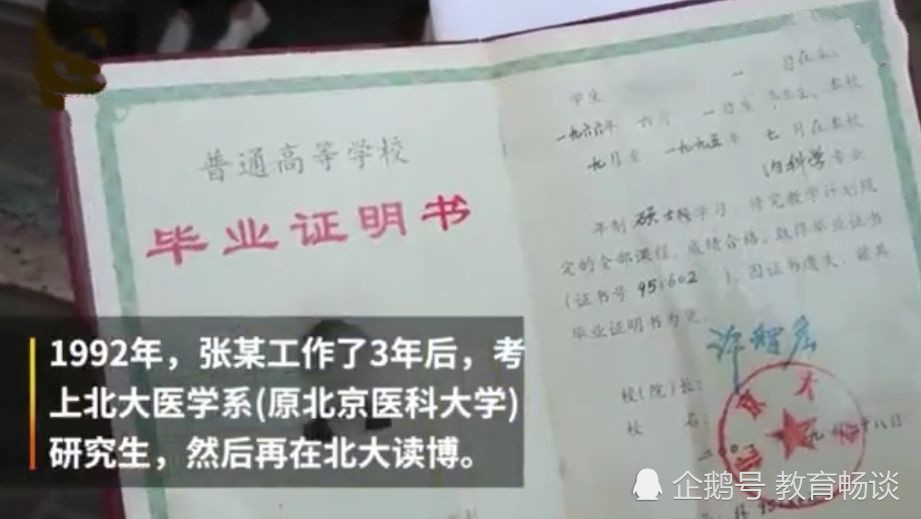 普通高等学校
毕业证明书
学生
一九六六年 六月 一日生
九月至 一九九五年 七月在本校
内科学专业
年制 硕士 学习，修完教学计划规
定的全部课程，成绩合格，取得毕业证书
(证书号 951602 )。因证书遗失，兹具
毕业证明书为凭。
许智宏
校(院)长：
校 名：
1992年，张某工作了3年后，考
上北大医学系(原北京医科大学)
研究生，然后再在北大读博。
企鹅号 教育畅谈